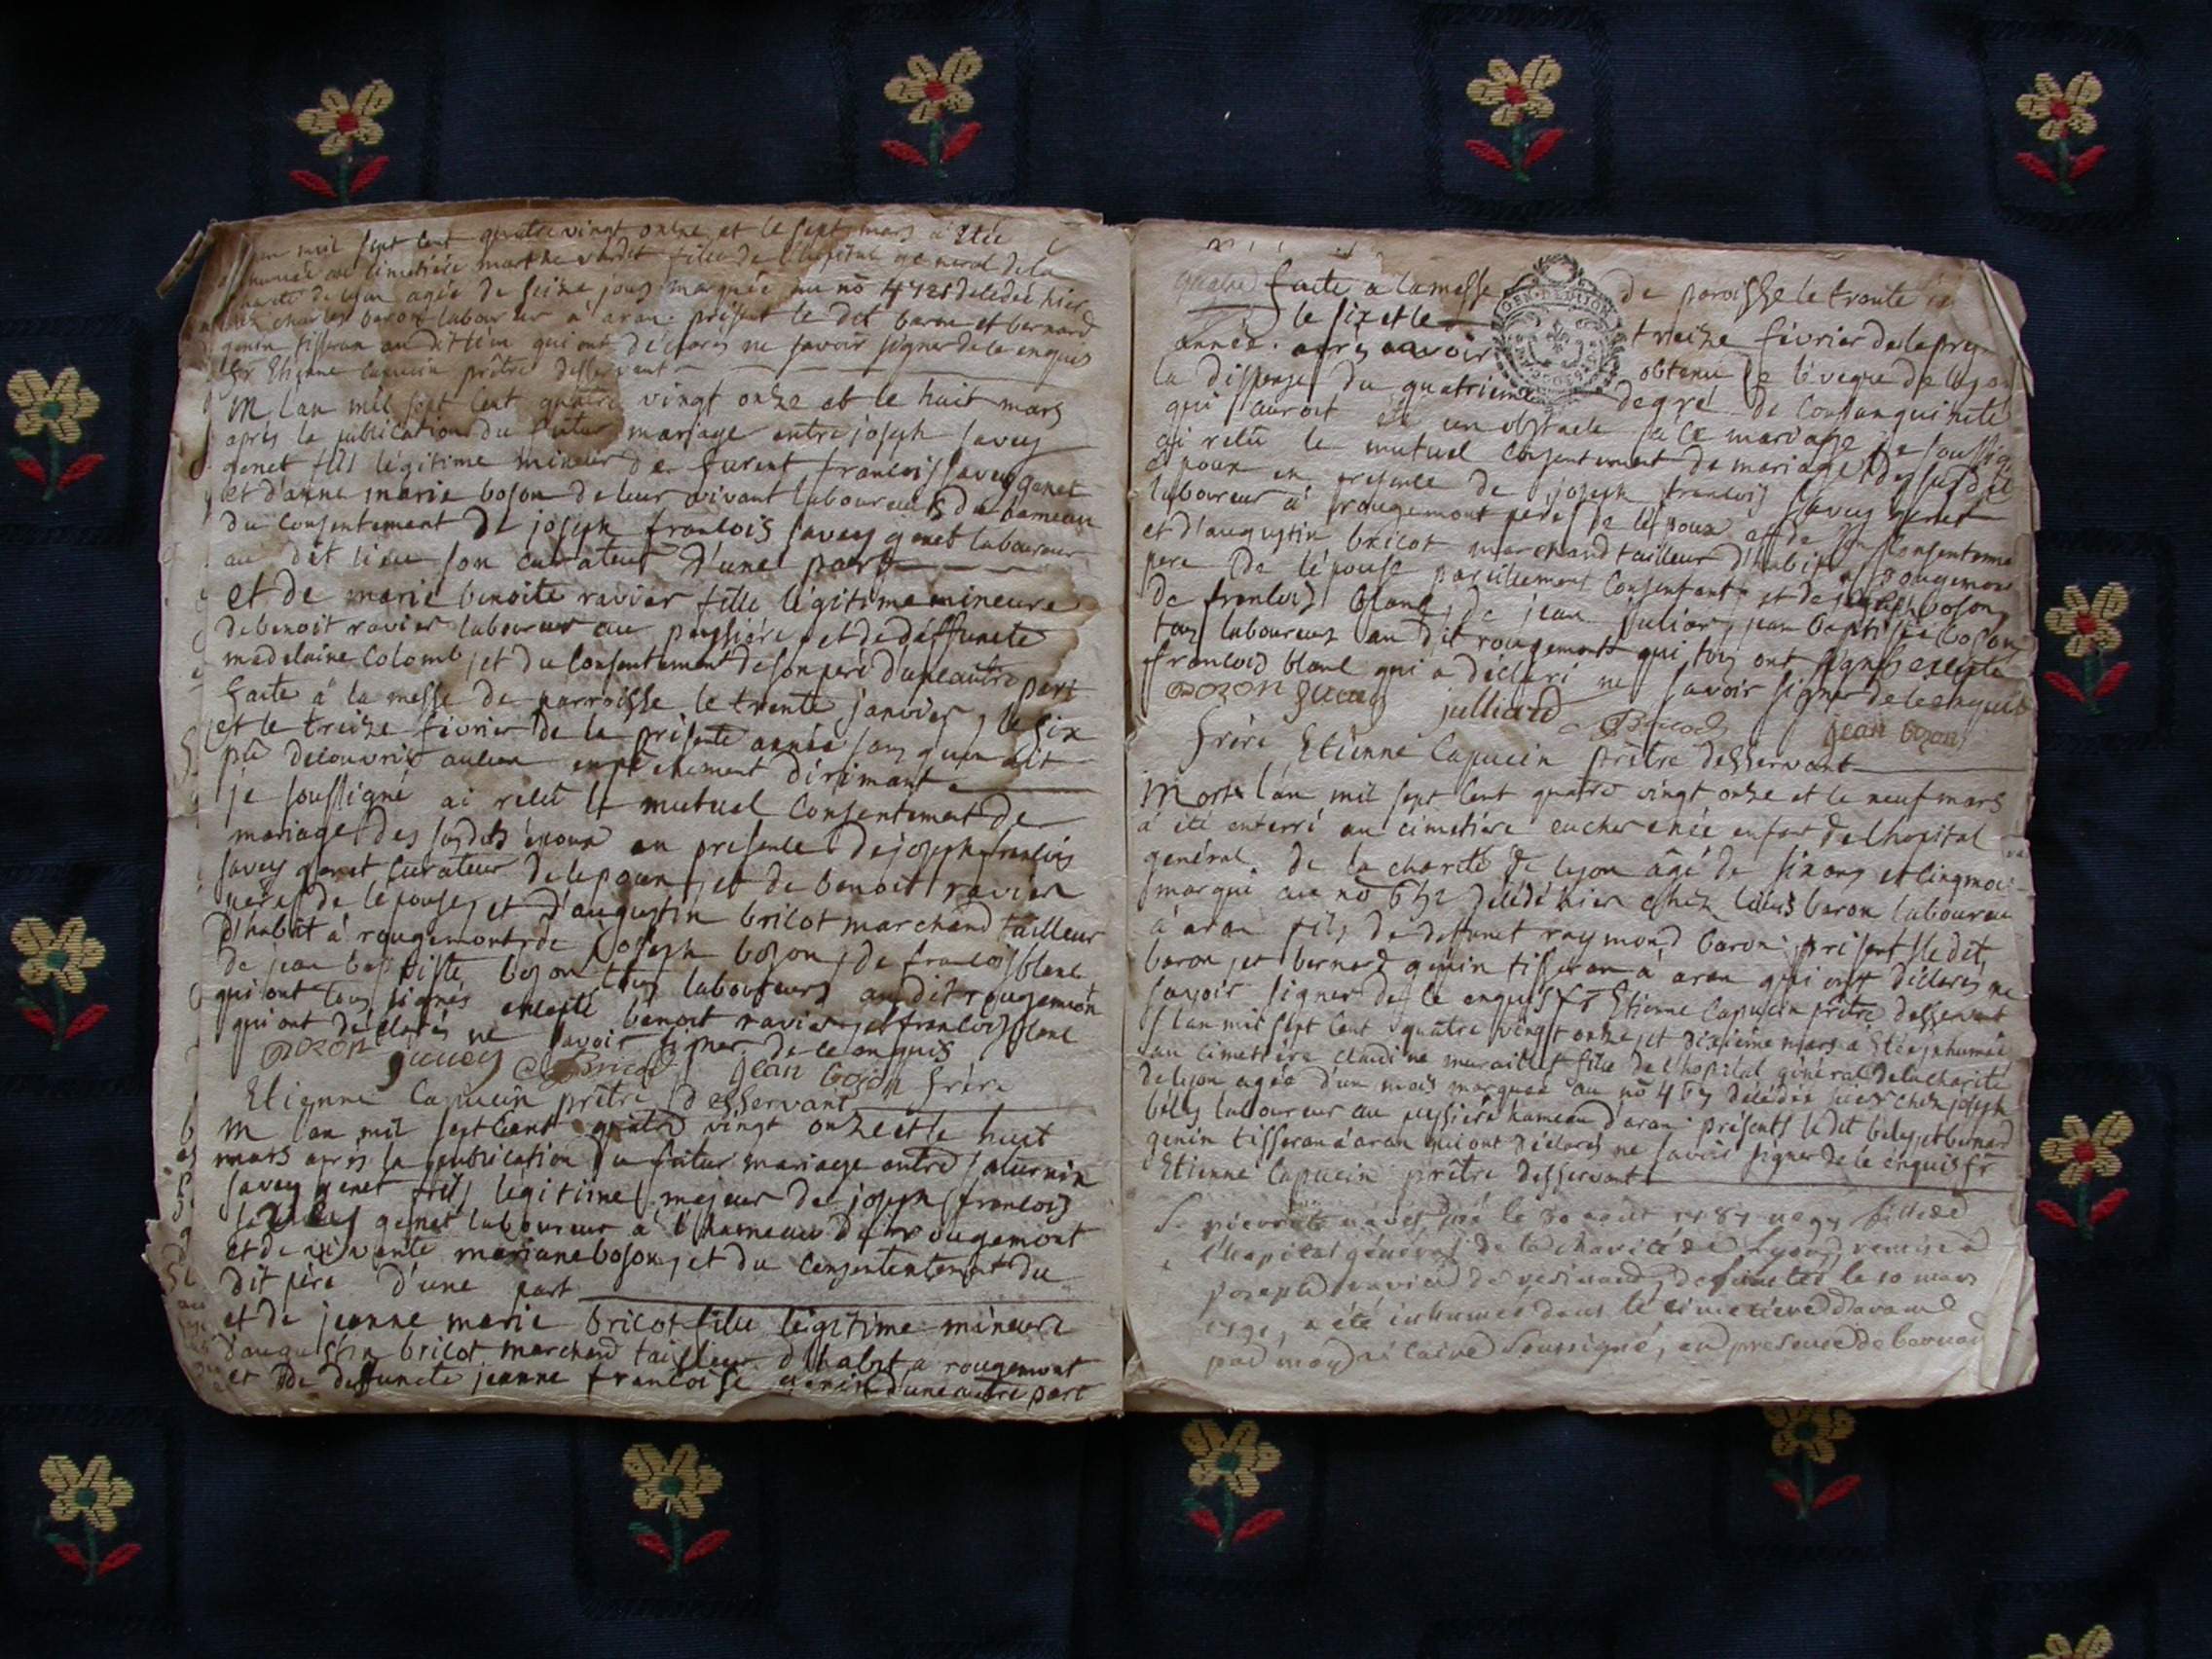 mil sept cent quatre vingt onze et le sept mars a été
au cimetière marthe fille de l'hopital general de la
de lyon agée de seize jours marquée au no 4721 décédée hier
charles baron laboureur a aran présent le dit baron et bernard
genin tisseran au dit lieu qui ont déclarés ne savoir signer de ce enquis
fr Etienne Capucin prêtre desservant
M lan mil sept cent quatre vingt onze et le huit mars
après la publication du futur mariage entre joseph savey
genet fils légitime mineur de furent francois savey genet
et d'anne marie boson de leur vivant laboureurs du hameau
du consentement de joseph francois savey genet laboureur
au dit lieu son curateur d'une part
et de marie benoite ravier fille légitime mineure
de benoit ravier laboureur au peyssiére et de deffuncte
madelaine Colomb, et du consentement de son pere d'une autre part
faite a la messe de parroisse le trente janvier, le six
et le treize février de la présente année sans qu'on ait
pû découvrir aucun empêchement dirimant
je soussigné ai reçû le mutuel consentement de
mariage des susdits époux en présence de joseph francois
savey genet curateur de lepoux, et de benoit ravier
père de l'epouse, et d'augustin bricot marchand tailleur
d'habit à rougemont, de joseph boson, de francois blanc
de jean baptiste boson tous laboureurs au dit rougemont
qui ont tous signés excepté benoit ravier, et francois blanc
qui ont déclarés ne savoir signer de ce enquis
BOZON Savey Bricot jean bozon frère
Etienne Capucin prêtre desservant
M lan mil sept cent quatre vingt onze et le huit
mars après la publication du futur mariage entre saturnin
savey genet fils légitime majeur de joseph francois
savey genet laboureur a l'hameau de rougemont
et de vivante mariane boson, et du consentement du
dit père d'une part
et de jeanne marie bricot fille légitime mineure
d'augustin bricot marchand tailleur d'habit a rougemont
et de deffuncte jeanne francoise genin d'une autre part
faite a la messe de paroisse le trente
le six et le treize février de la
année. après avoir obtenu de l'évêque de lyon
la dispense du quatrieme degré de Consanguinité
qui auroit été un obstacle à ce mariage je soussigné
ai reçû le mutuel consentement de mariage des susdits
époux en présence de joseph francois savey genet
laboureur à rougemont père de l'époux
et d'augustin bricot marchand tailleur d'habit a rougemont
pere de l'épouse pareillement consentant et de joseph boson,
de francois blanc, de jean julliard, jean baptiste boson
tous laboureurs au dit rougemont qui tous ont signés excepté
francois blanc qui a déclaré ne savoir signer de ce enquis
BOZON Savey julliard Bricot jean bozon
frère Etienne Capucin prêtre desservant
Mort l'an mil sept cent quatre vingt onze et le neuf mars
a été enterré au cimetière enfant de l'hopital
général de la charité de lyon âgé de six ans et cinq mois
marqué au no décédé hier chez baron laboureur
à aran fils de deffunct raymond baron: présent le dit
baron, et bernard genin tisseran à aran qui ont déclarés ne
savoir signer de ce enquis fr Etienne Capucin prêtre desservant
lan mil sept cent quatre vingt onze, et dixième mars a été inhumée
au cimetière claudine fille de l'hopital général de la charité
de lyon agée d'un mois marquée au no décédée hier chez joseph
béley laboureur au peyssiére hameau d'aran: présents le dit béley, et bernard
genin tisseran à aran qui ont déclarés ne savoir signer de ce enquis fr
Etienne Capucin prêtre desservant
le 30 août fille de
l'hopital général de la charité de Lyon, remise a
joseph ravier de décédée le 10 mars
1791, a été inhumée dans le cimetiere d'aran
par moy vicaire soussigné, en présence de bernard